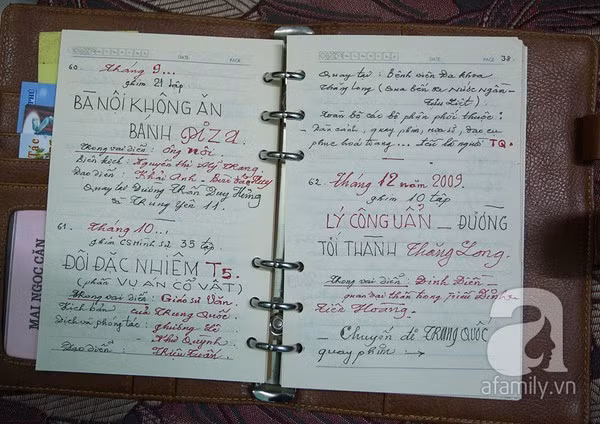 DATE PAGE
60. Tháng 9...
phim 21 tập
BÀ NỘI KHÔNG ĂN
BÁNH PIZA.
Trong vai diễn: Ông Nội.
Biên kịch: Nguyễn Thị Mỹ Trang.
Đạo diễn: Khải Anh - Bùi Tấn Huy
Quay tại Đường Trần Duy Hưng
và Trung Yên 11.
61. Tháng 10...
phim CS Hình Sự 35 tập
ĐỘI ĐẶC NHIỆM T5.
(phần VỤ ÁN CỔ VẬT)
Trong vai diễn: Giáo sư Văn.
Kịch bản của Trung Quốc.
Dịch và phóng tác:
Như Quỳnh.
Đạo diễn: Triệu Tuấn.
DATE PAGE 38
Quay tại: Bệnh viện Đa Khoa
Thăng Long (Qua bến xe Nước Ngầm -
Tựu Liệt)
Toàn bộ các bộ phận phối thuộc:
- dàn cảnh, quay phim, họa sĩ, đạo cụ
phục hóa trang... là người TQ.
62. Tháng 12 năm 2009.
phim 10 tập
LÝ CÔNG UẨN _ ĐƯỜNG
TỚI THÀNH Thăng Long.
Trong vai diễn: Đinh Điền -
quan đại thần trong triều Đinh
Tiên Hoàng.
_ Chuyến đi TRUNG QUỐC
quay phim:
MAI NGỌC CĂN
PHÚ
a
afamily.vn